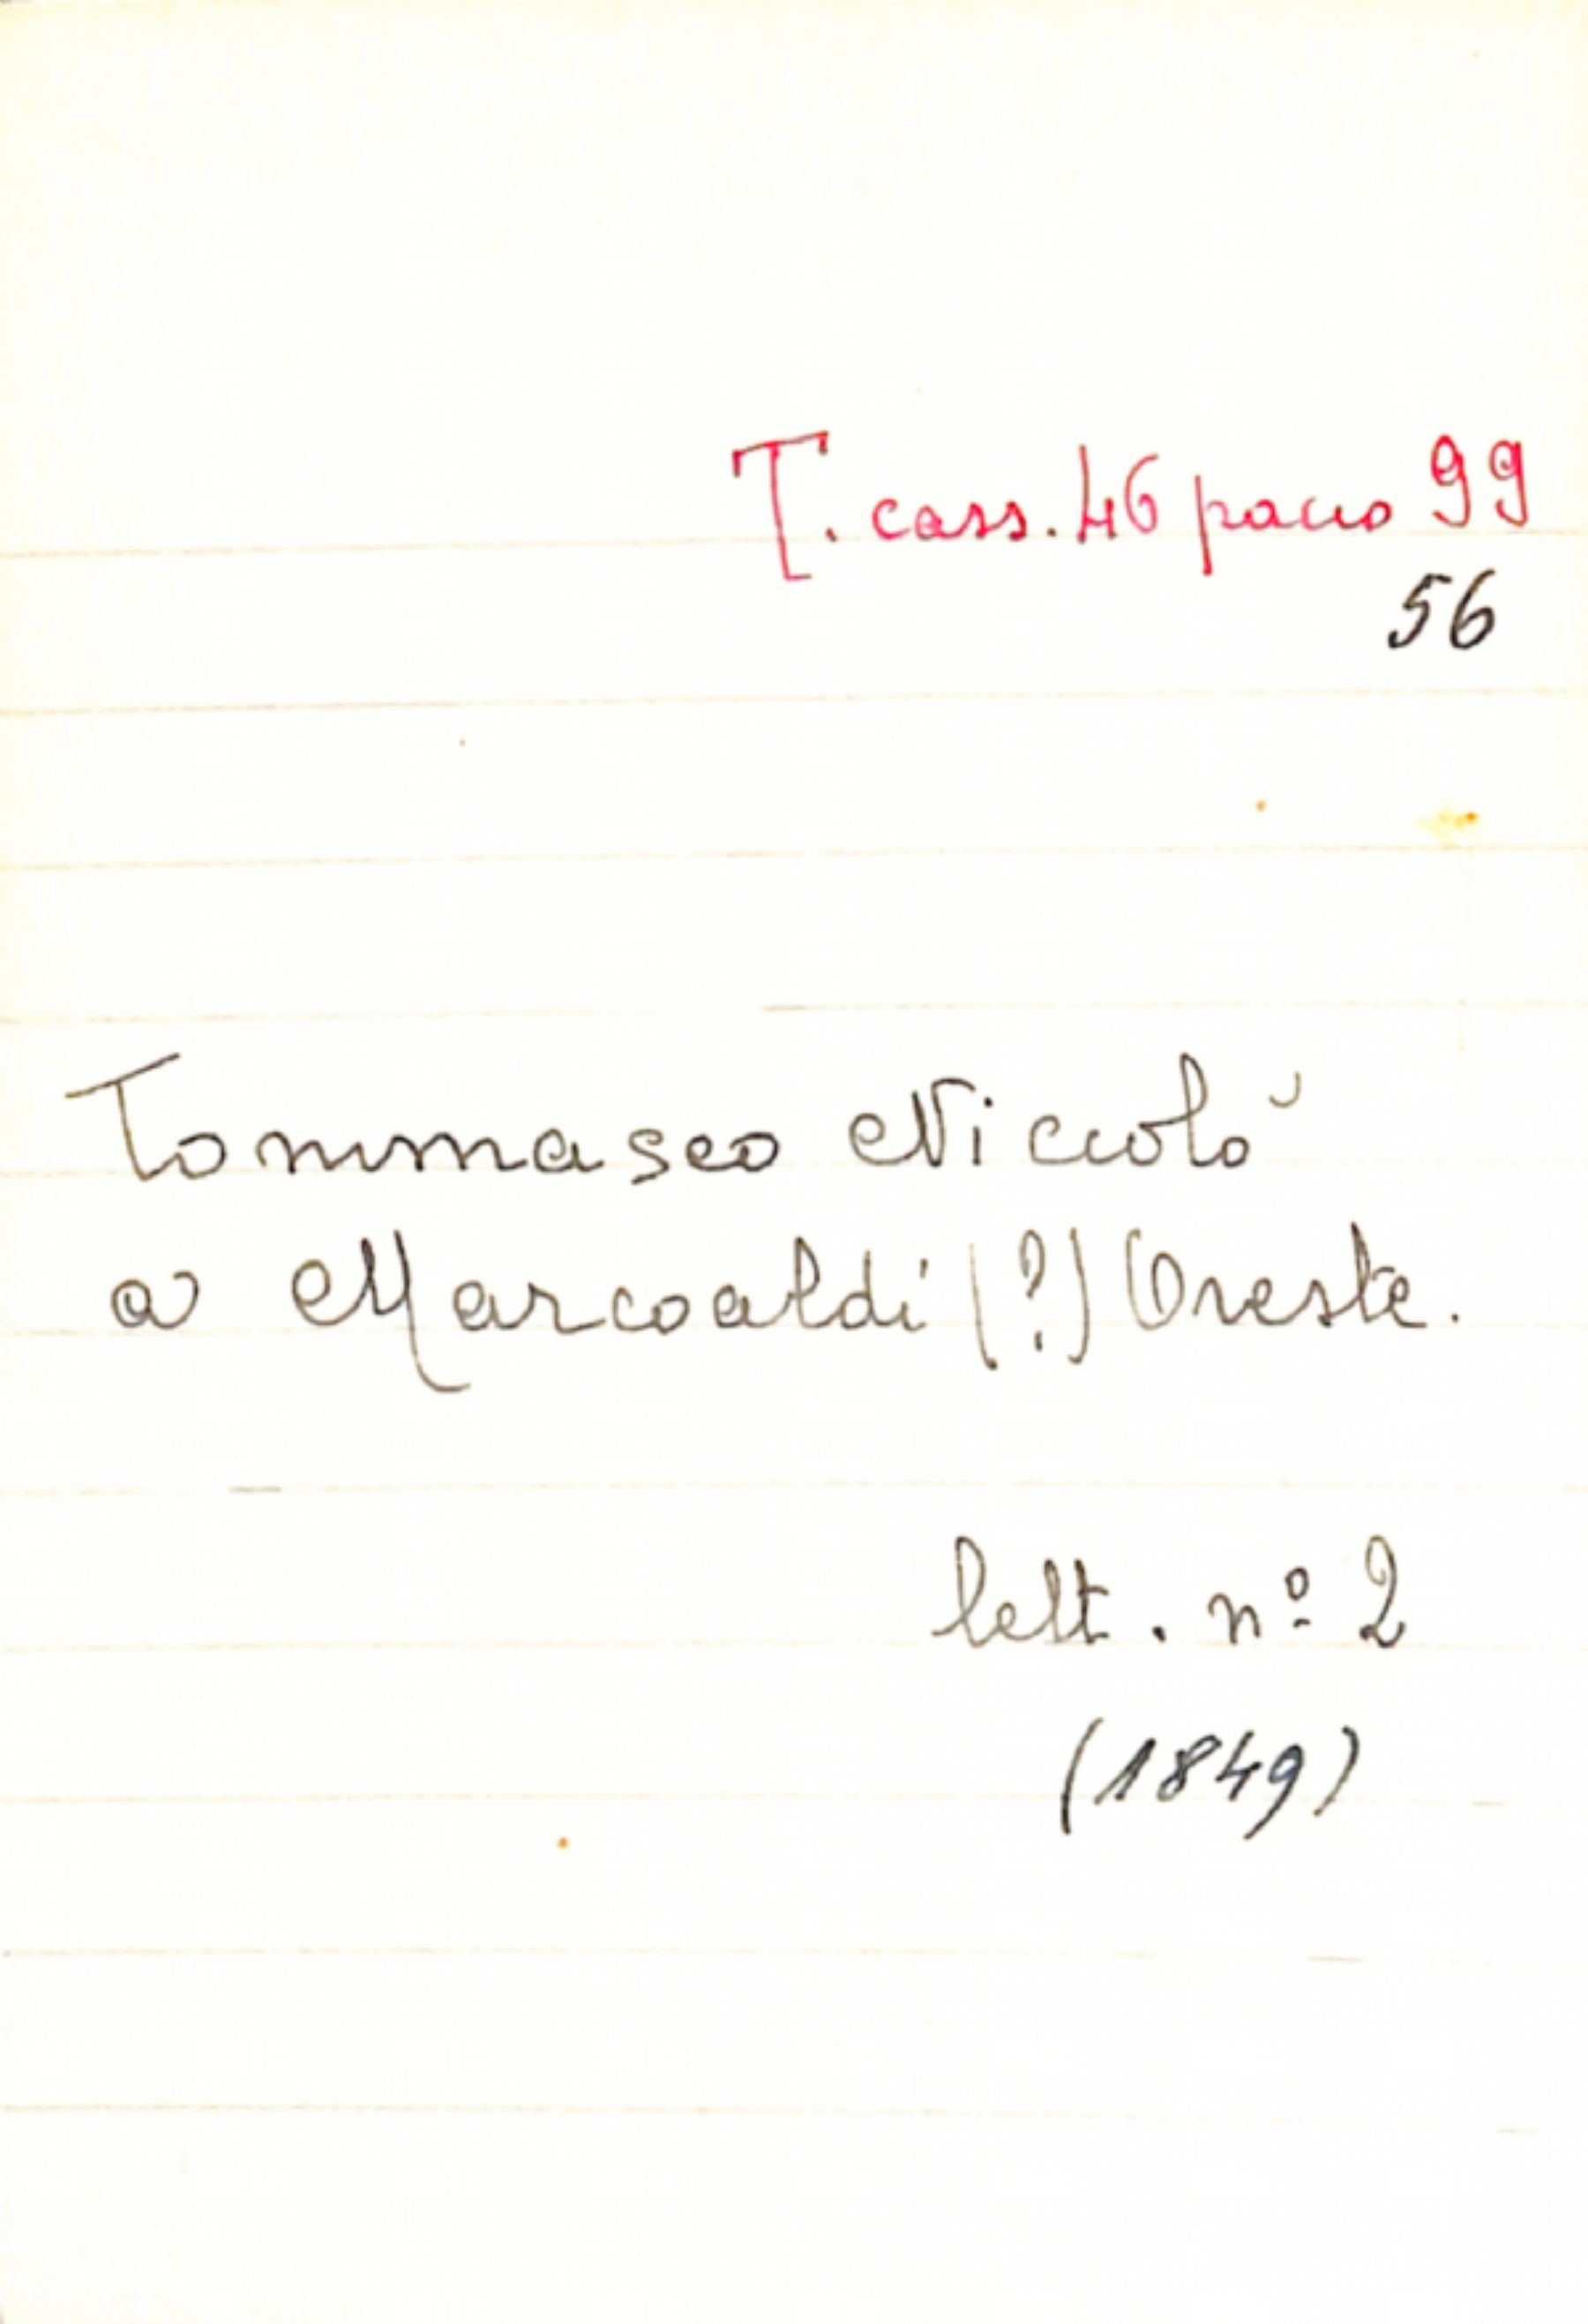 T. cass. 46 pacco 99
56
Tommaseo Niccolò
a Marcoaldi (?) Oreste.
lett. nº 2
(1849)